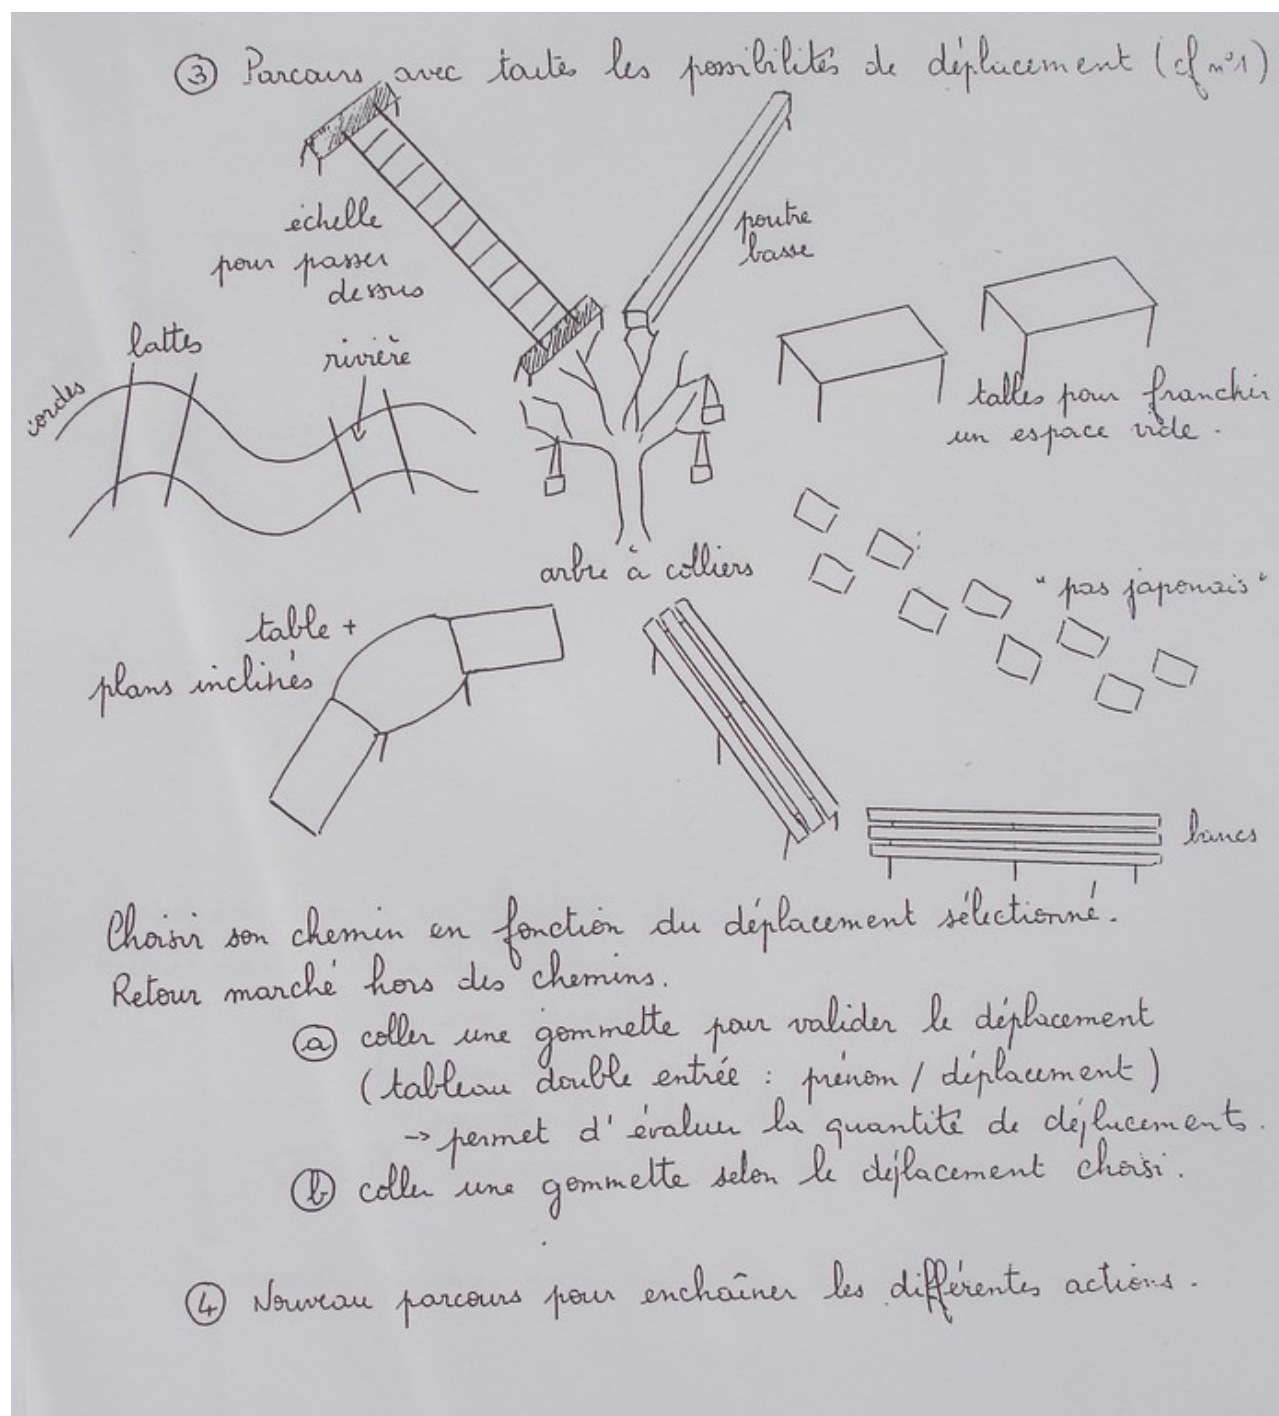 ③ Parcours avec toutes les possibilités de déplacement (cf n°1)
échelle
pour passer
dessus
poutre
basse
lattes
rivière
cordes
tables pour franchir
un espace vide.
arbre à colliers
"pas japonais"
table +
plans inclinés
bancs
Choisir son chemin en fonction du déplacement sélectionné.
Retour marché hors des chemins.
ⓐ coller une gommette pour valider le déplacement
(tableau double entrée : prénom / déplacement)
→ permet d'évaluer la quantité de déplacements.
ⓑ coller une gommette selon le déplacement choisi.
④ Nouveau parcours pour enchaîner les différentes actions.